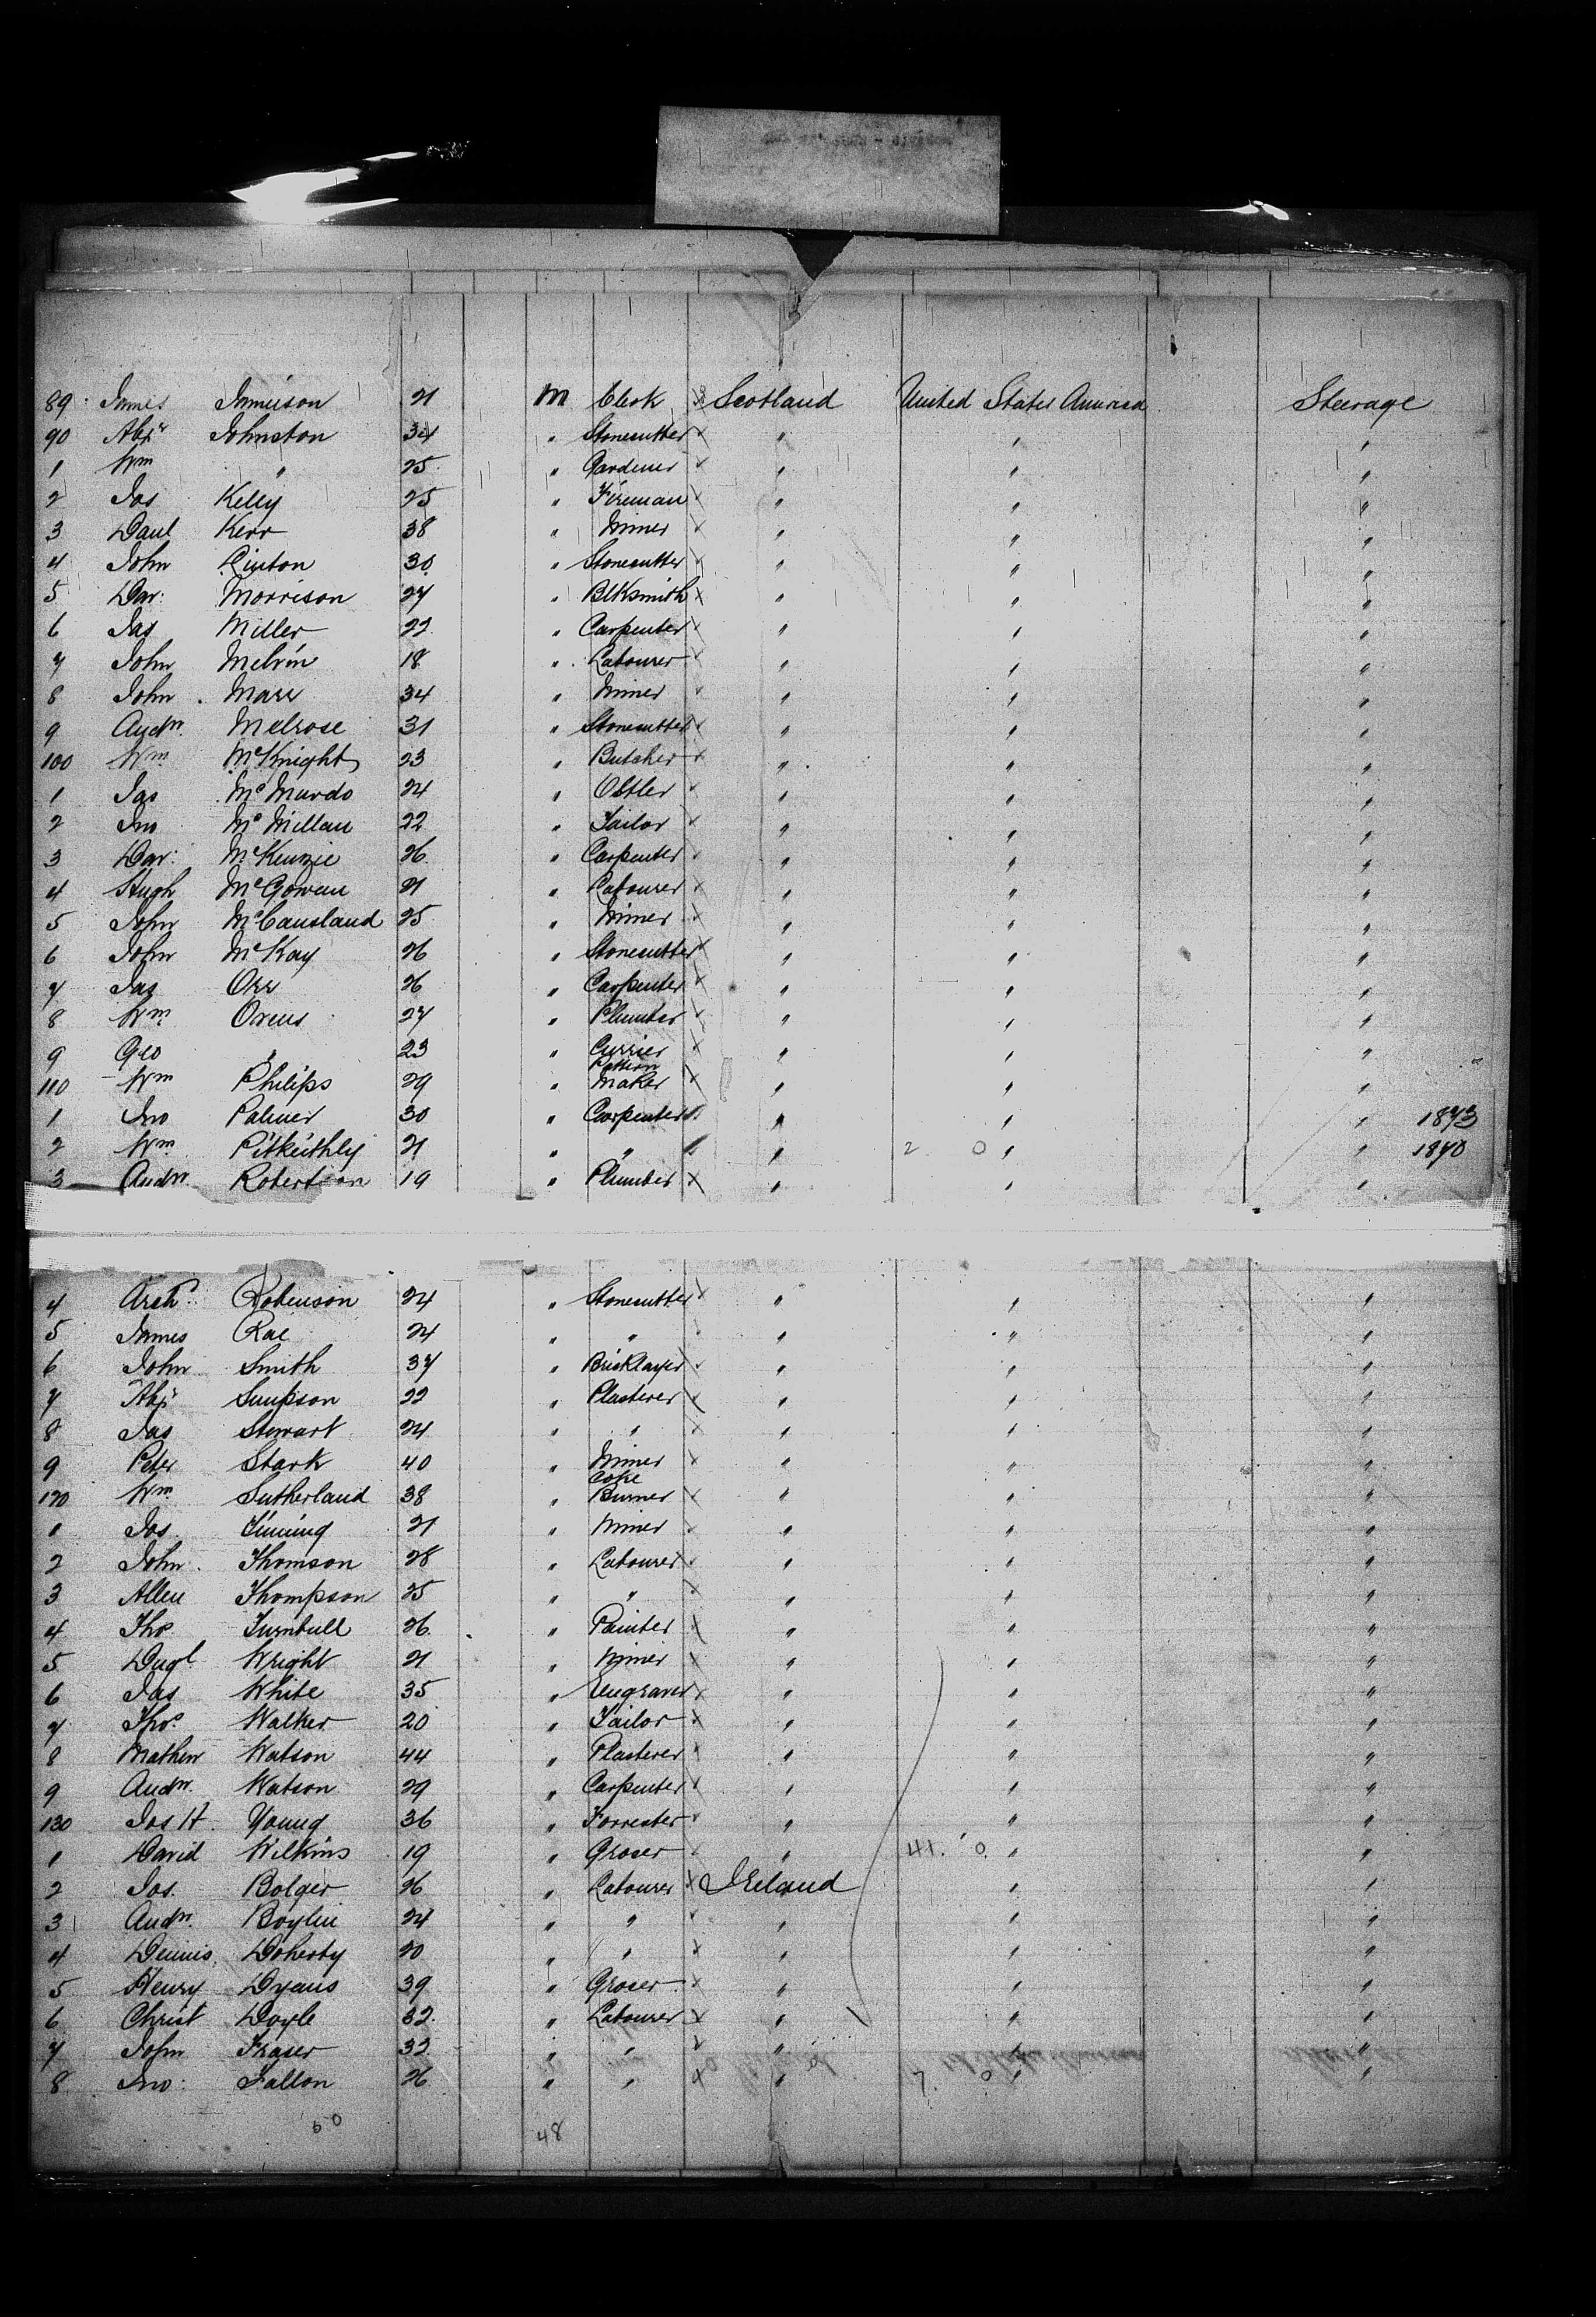 89 James Jamieson 21 M Clerk Scotland United States America Steerage
90 Alexr Johnston 34 " Stonecutter " " "
1 Wm " 25 " Gardener " " "
2 Jos Kelly 25 " Fireman " " "
3 Danl Kerr 38 " Miner " " "
4 John Linton 30 " Stonecutter " " "
5 Dav: Morrison 27 " Blksmith " " "
6 Jas Miller 22 " Carpenter " " "
7 John Melvin 18 " Labourer " " "
8 John Marr 34 " Miner " " "
9 Andw Melrose 31 " Stonecutter " " "
100 Wm McKnight 23 " Butcher " " "
1 Jas McMurdo 24 " Ostler " " "
2 Jno McMillan 22 " Tailor " " "
3 Dav: McKenzie 26 " Carpenter " " "
4 Hugh McGowan 21 " Labourer " " "
5 John McCausland 25 " Miner " " "
6 John McKay 26 " Stonecutter " " "
7 Jas Orr 26 " Carpenter " " "
8 Wm Owens 27 " Plumber " " "
9 Geo " 23 " Currier " " "
110 Wm Philips 29 " Pattern Maker " " "
1 Jno Palmer 30 " Carpenter " " " 1873
2 Wm Pitkeithly 21 " " " 2 0 " " 1870
3 Andw Robertson 19 " Plumber " " "
4 Archd Robinson 24 " Stonecutter " " "
5 James Rae 24 " " " " "
6 John Smith 37 " Bricklayer " " "
7 Alexr Simpson 22 " Plasterer " " "
8 Jas Stewart 24 " " " " "
9 Peter Stark 40 " Miner " " "
120 Wm Sutherland 38 " Coke Burner " " "
1 Jos. Tinning 21 " Miner " " "
2 John Thomson 28 " Labourer " " "
3 Allen Thompson 25 " " " " "
4 Thos Turnbull 26 " Painter " " "
5 Dugl Wright 21 " Miner " " "
6 Jas White 35 " Engraver " " "
7 Thos. Walker 20 " Tailor " " "
8 Mathew Watson 44 " Plasterer " " "
9 Andw. Watson 29 " Carpenter " " "
130 Jos H. Young 36 " Forrester " " "
1 David Wilkins 19 " Groser " 41. 0. " "
2 Jos. Bolger 26 " Labourer Ireland " "
3 Andw. Boylin 24 " " " " "
4 Dennis Doherty 20 " " " " "
5 Henry Dyans 39 " Groser " " "
6 Christ Doyle 32 " Labourer " " "
7 John Fraser 32 " " " " "
8 Jno: Fallon 26 " " " 7. 0 " "
50 48